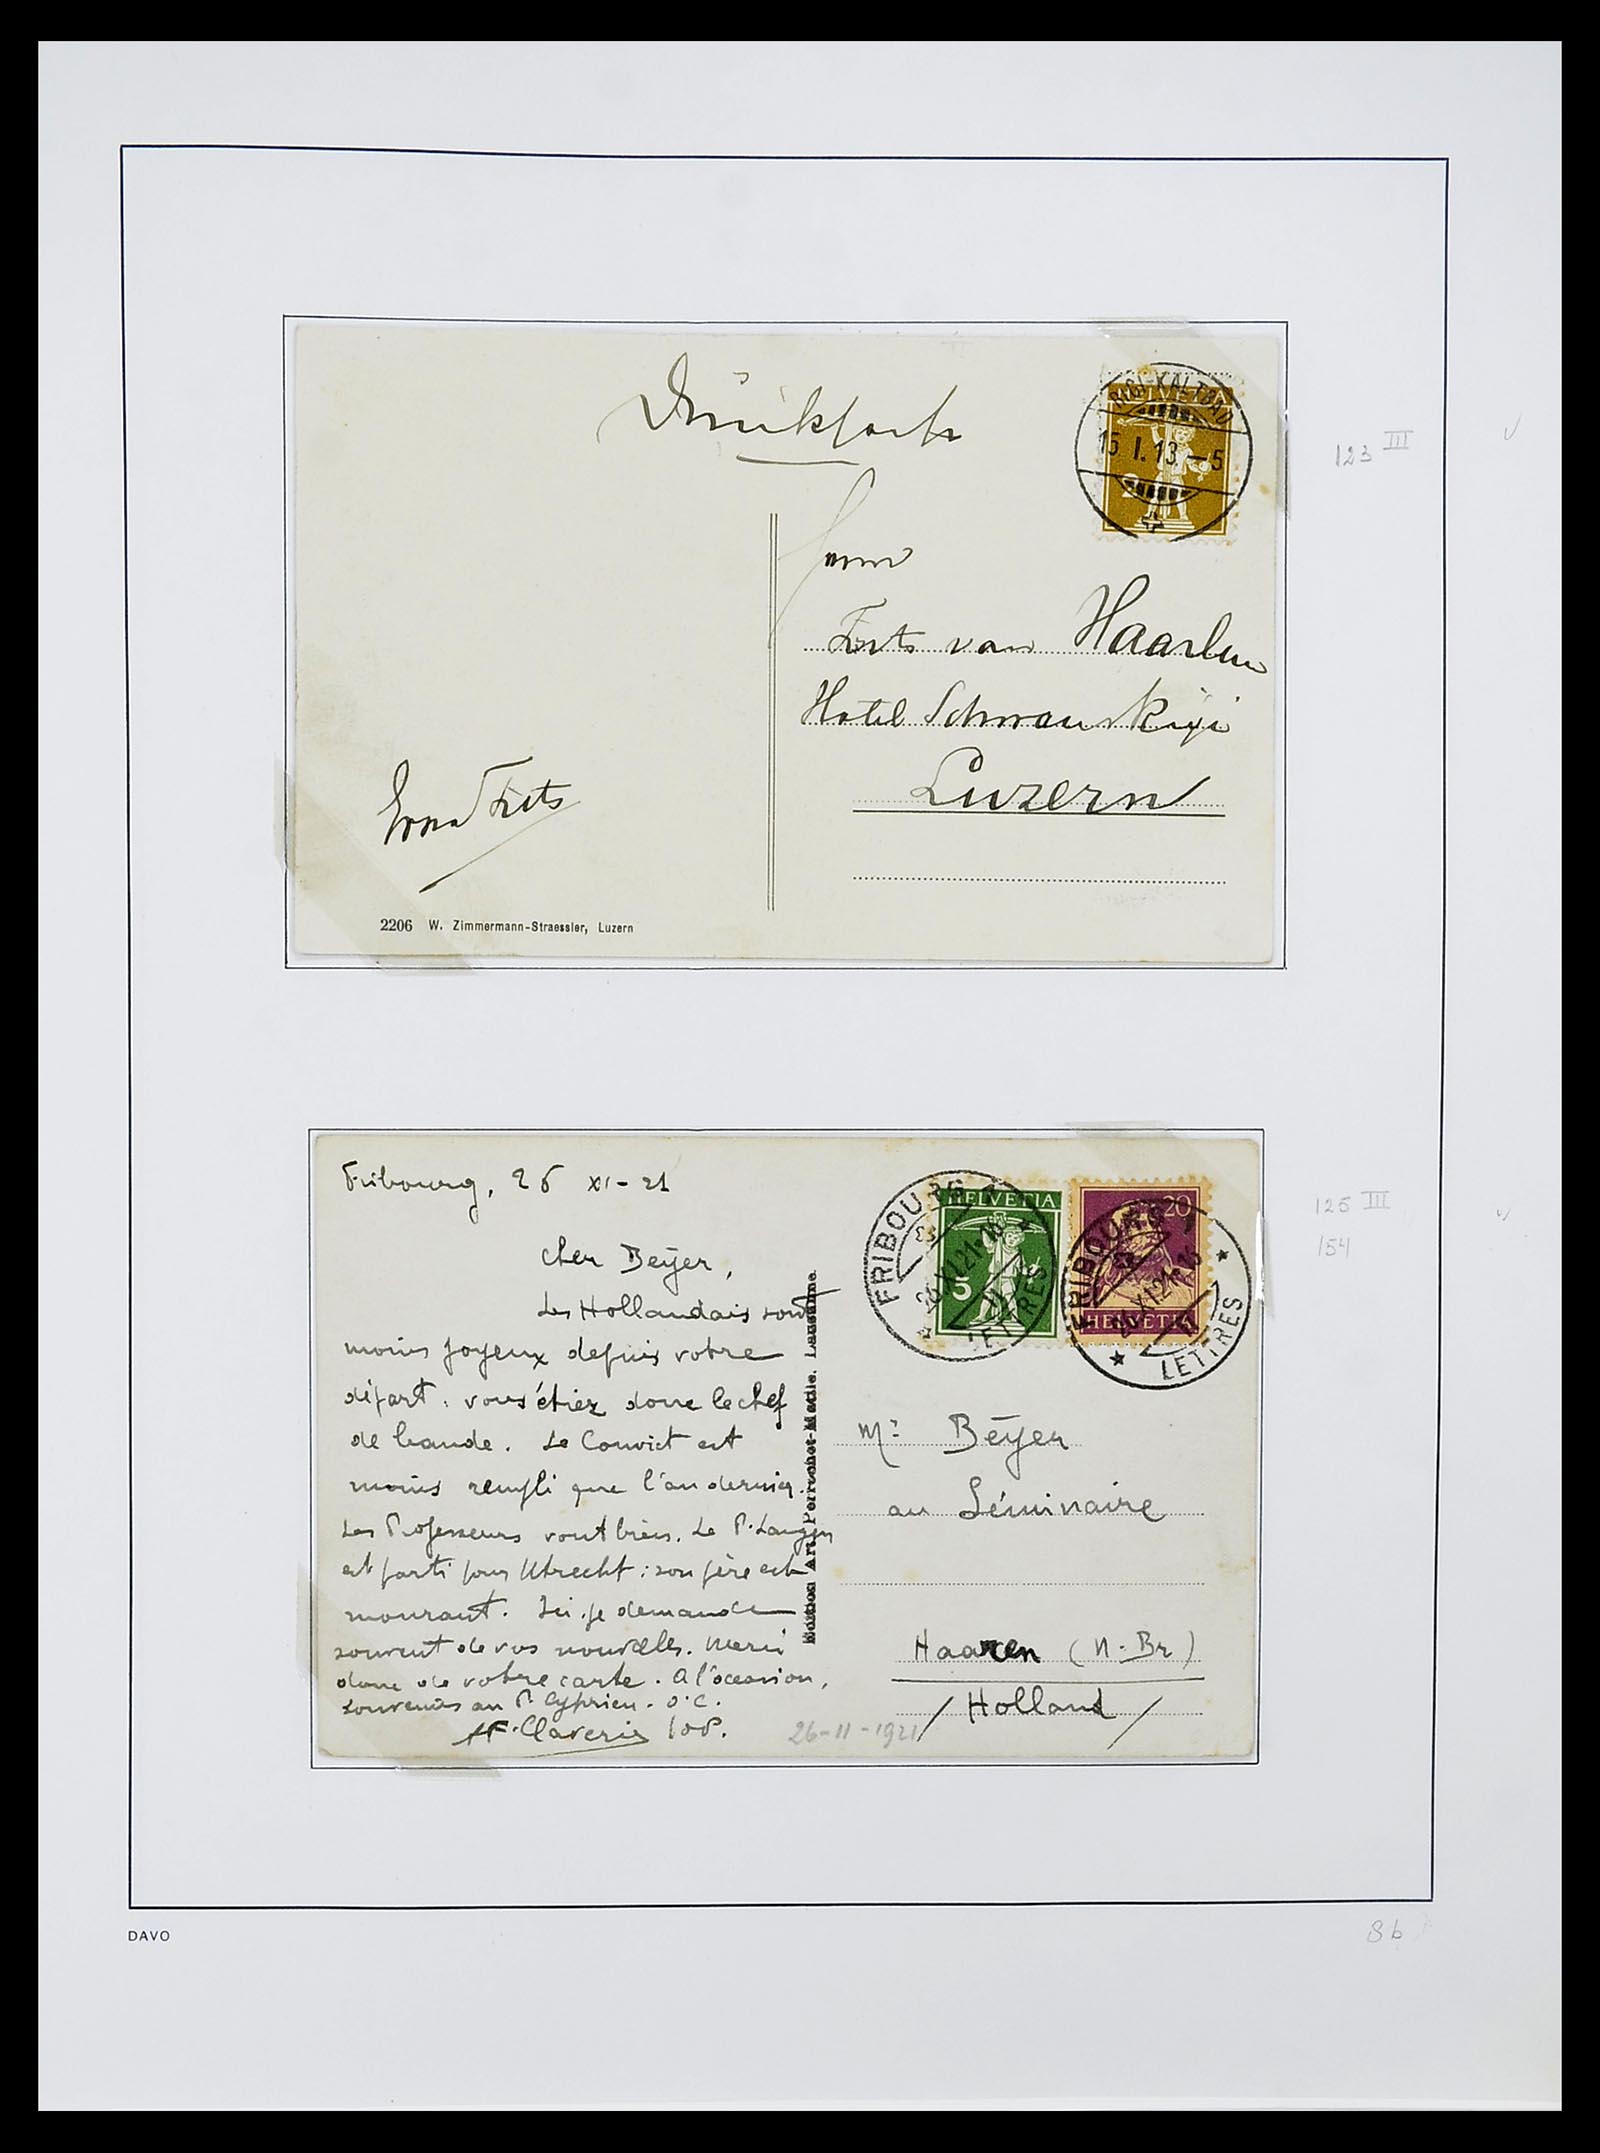 Drucksache
HELVETIA
RIGI-KALTBAD
15 I. 13 – 5
2
123 III
Herrn
Frits van Haarlem
Hotel Schwan & Rigi
Luzern
Erna Frits
2206 W. Zimmermann-Straessler, Luzern
Fribourg, 26 XI-21
HELVETIA
5
20
HELVETIA
FRIBOURG 1
26. XI. 21. 16
LETTRES
FRIBOURG 1
26. XI. 21. 16
LETTRES
125 III
154
Cher Beÿer,
Les Hollandais sont
moins joyeux depuis votre
départ. vous étiez donc le chef
de bande. Le Convict est
moins rempli que l'an dernier.
Les Professeurs vont bien. Le P. Langen
est parti pour Utrecht : son père est
mourant. Ici je demande
souvent de vos nouvelles. Merci
donc de votre carte. A l'occasion,
souvenirs au P. Cyprien. O.C.
Fr. Claverie fop.
Edition Art. Perrochet-Matile. Lausanne.
Mr Beÿer
au Séminaire
Haaren (N. Br)
/ Holland /
26-11-1921
DAVO
8b